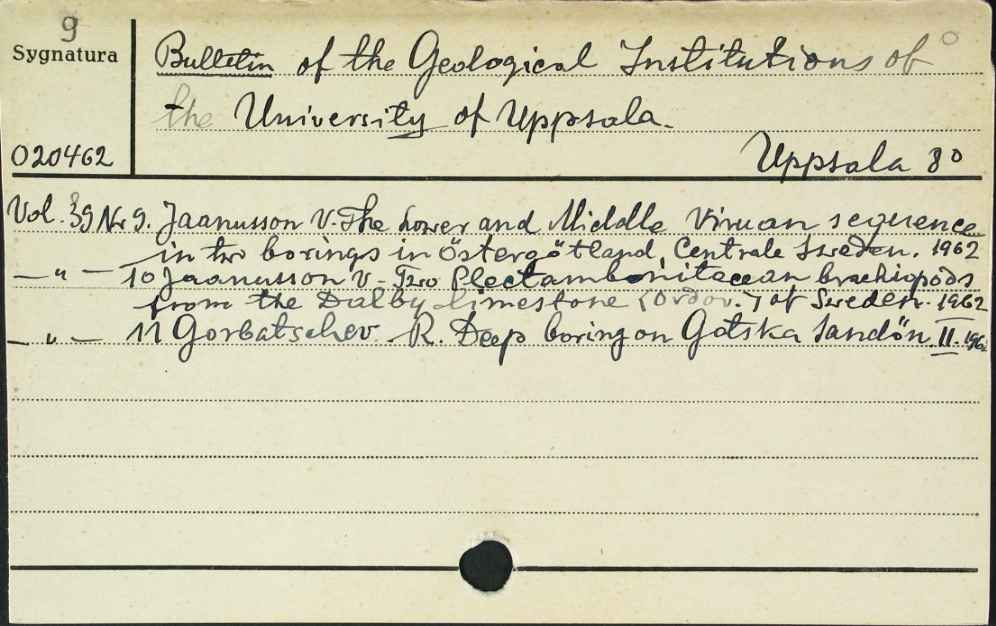 9
Sygnatura
020462
Bulletin of the Geological Institutions of
the University of Uppsala.
Uppsala 8°
Vol. 39 Nr 9. Jaanusson V. - The Lower and Middle Viruan sequence
in two borings in Östergötland, Centrale Sweden. 1962
— " — 10 Jaanusson V - Two Plectambonitacean brachiopods
from the Dalby limestone (Ordov.) of Sweden. 1962
— " — 11 Gorbatschev R. Deep boring on Gotska Sandön II. 196